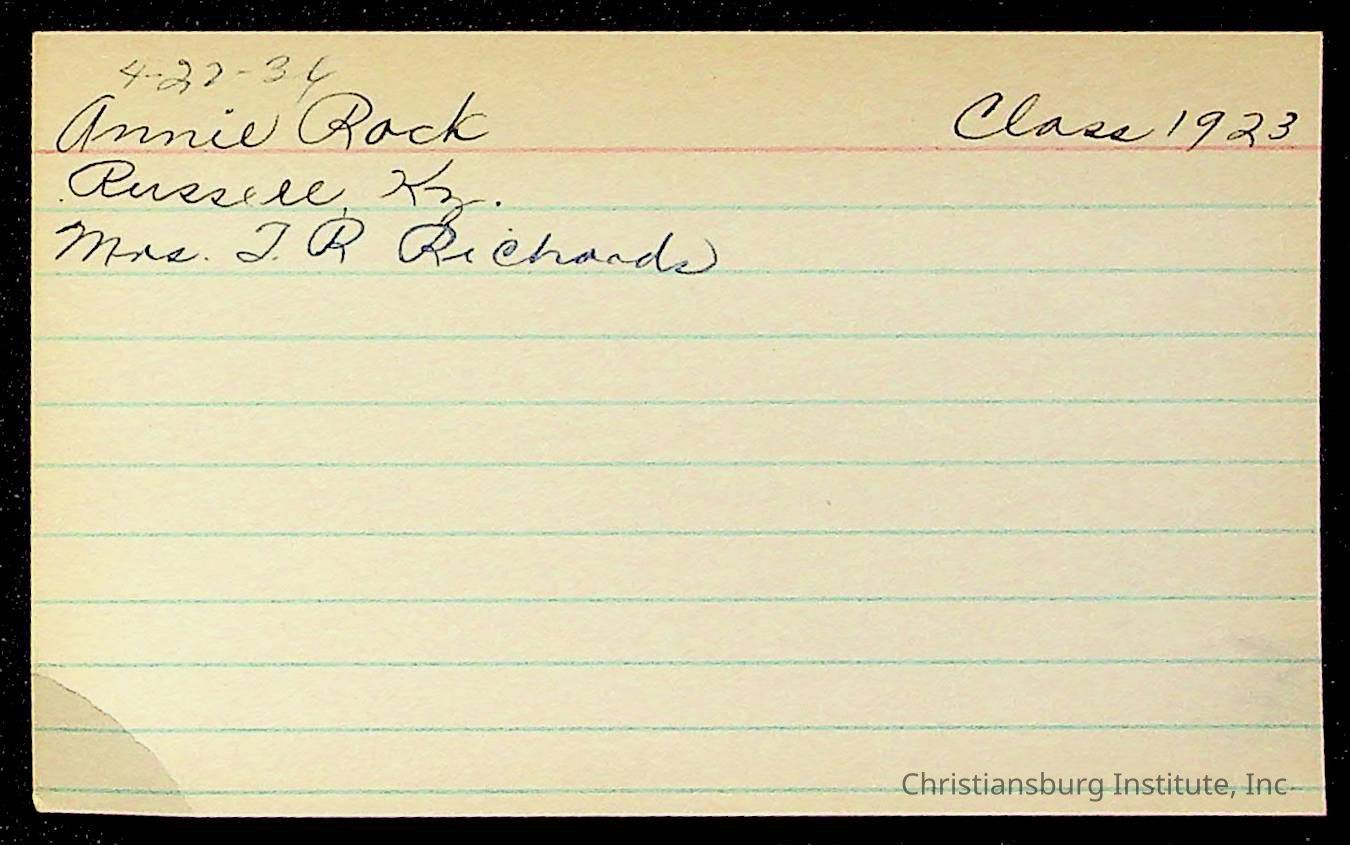 4-27-36
Annie Rock Class 1923
Russell, Ky.
Mrs. T. R Richards
Christiansburg Institute, Inc.